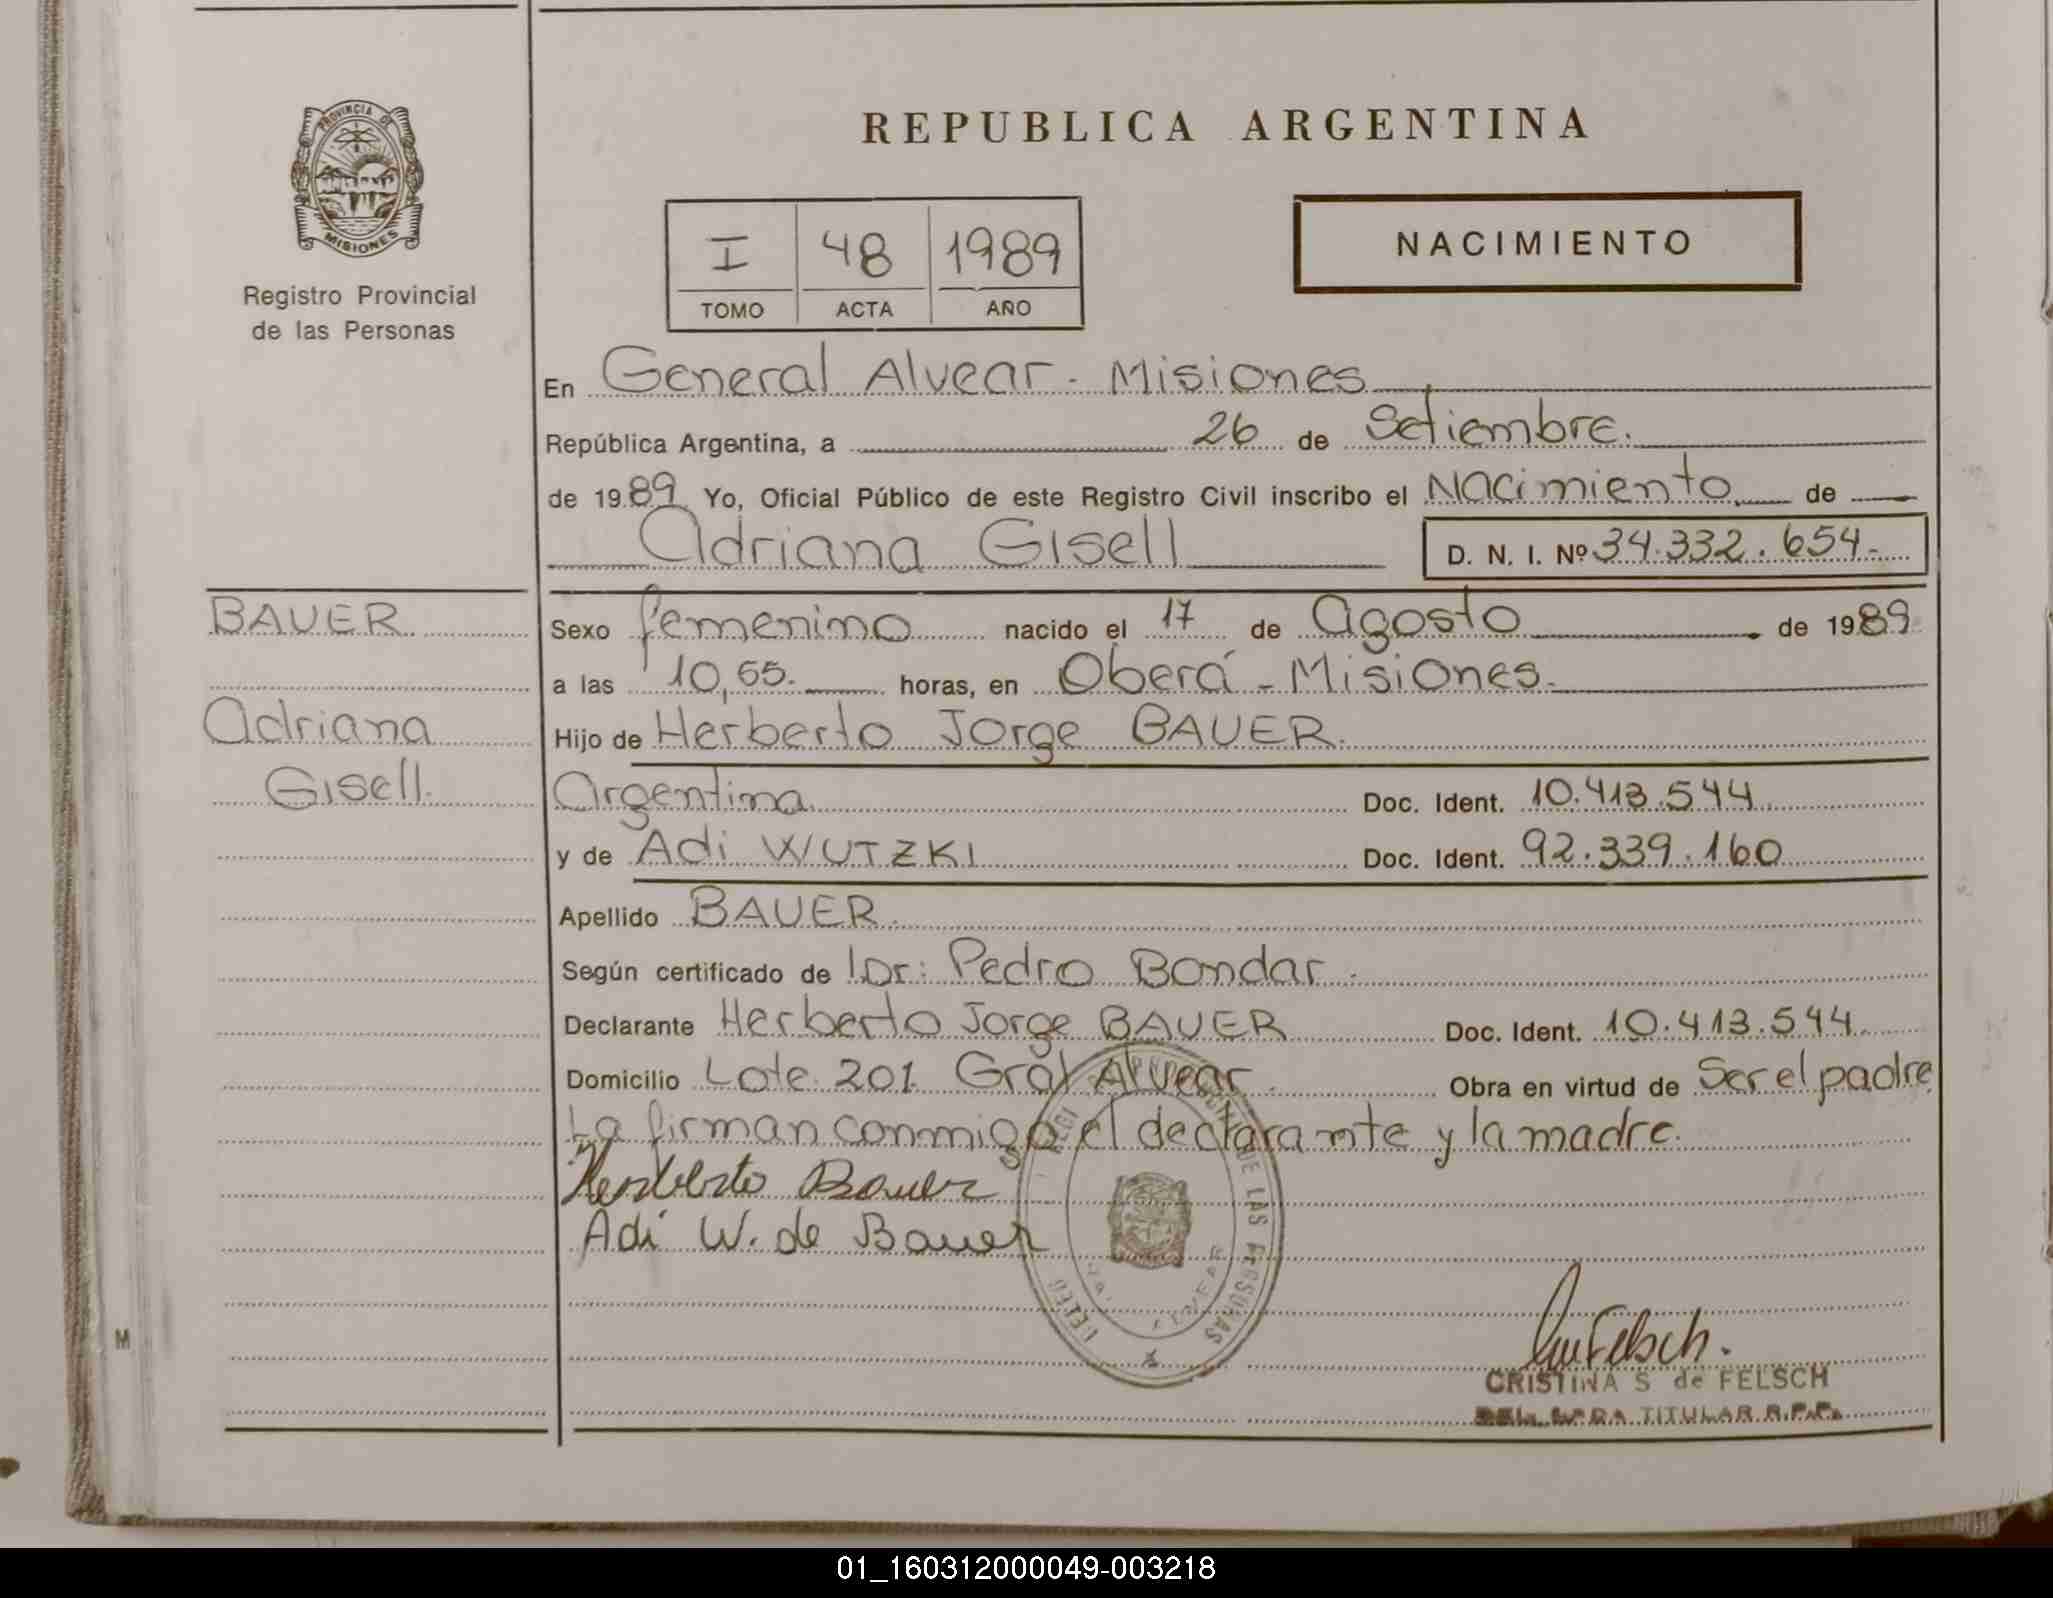 PROVINCIA DE
MISIONES
Registro Provincial
de las Personas
REPUBLICA ARGENTINA
I 48 1989
TOMO ACTA AÑO
NACIMIENTO
En General Alvear - Misiones
República Argentina, a 26 de Setiembre.
de 1989 Yo, Oficial Público de este Registro Civil inscribo el Nacimiento de
Adriana Gisell D. N. I. Nº 34.332.654.-
BAUER
Adriana
Gisell.
Sexo femenino nacido el 17 de Agosto de 1989
a las 10,55. horas, en Oberá - Misiones.
Hijo de Herberto Jorge BAUER.
Argentina Doc. Ident. 10.413.544
y de Adi WUTZKI Doc. Ident. 92.339.160
Apellido BAUER.
Según certificado de Dr: Pedro Bondar.
Declarante Herberto Jorge BAUER Doc. Ident. 10.413.544.
Domicilio Lote 201 Gral Alvear. Obra en virtud de Ser el padre
La firman conmigo el declarante y la madre.
Herberto Bauer
Adi W. de Bauer
DE LAS PERSONAS
Felsch.
CRISTINA S de FELSCH
TITULAR R.P.P.
M
01_160312000049-003218